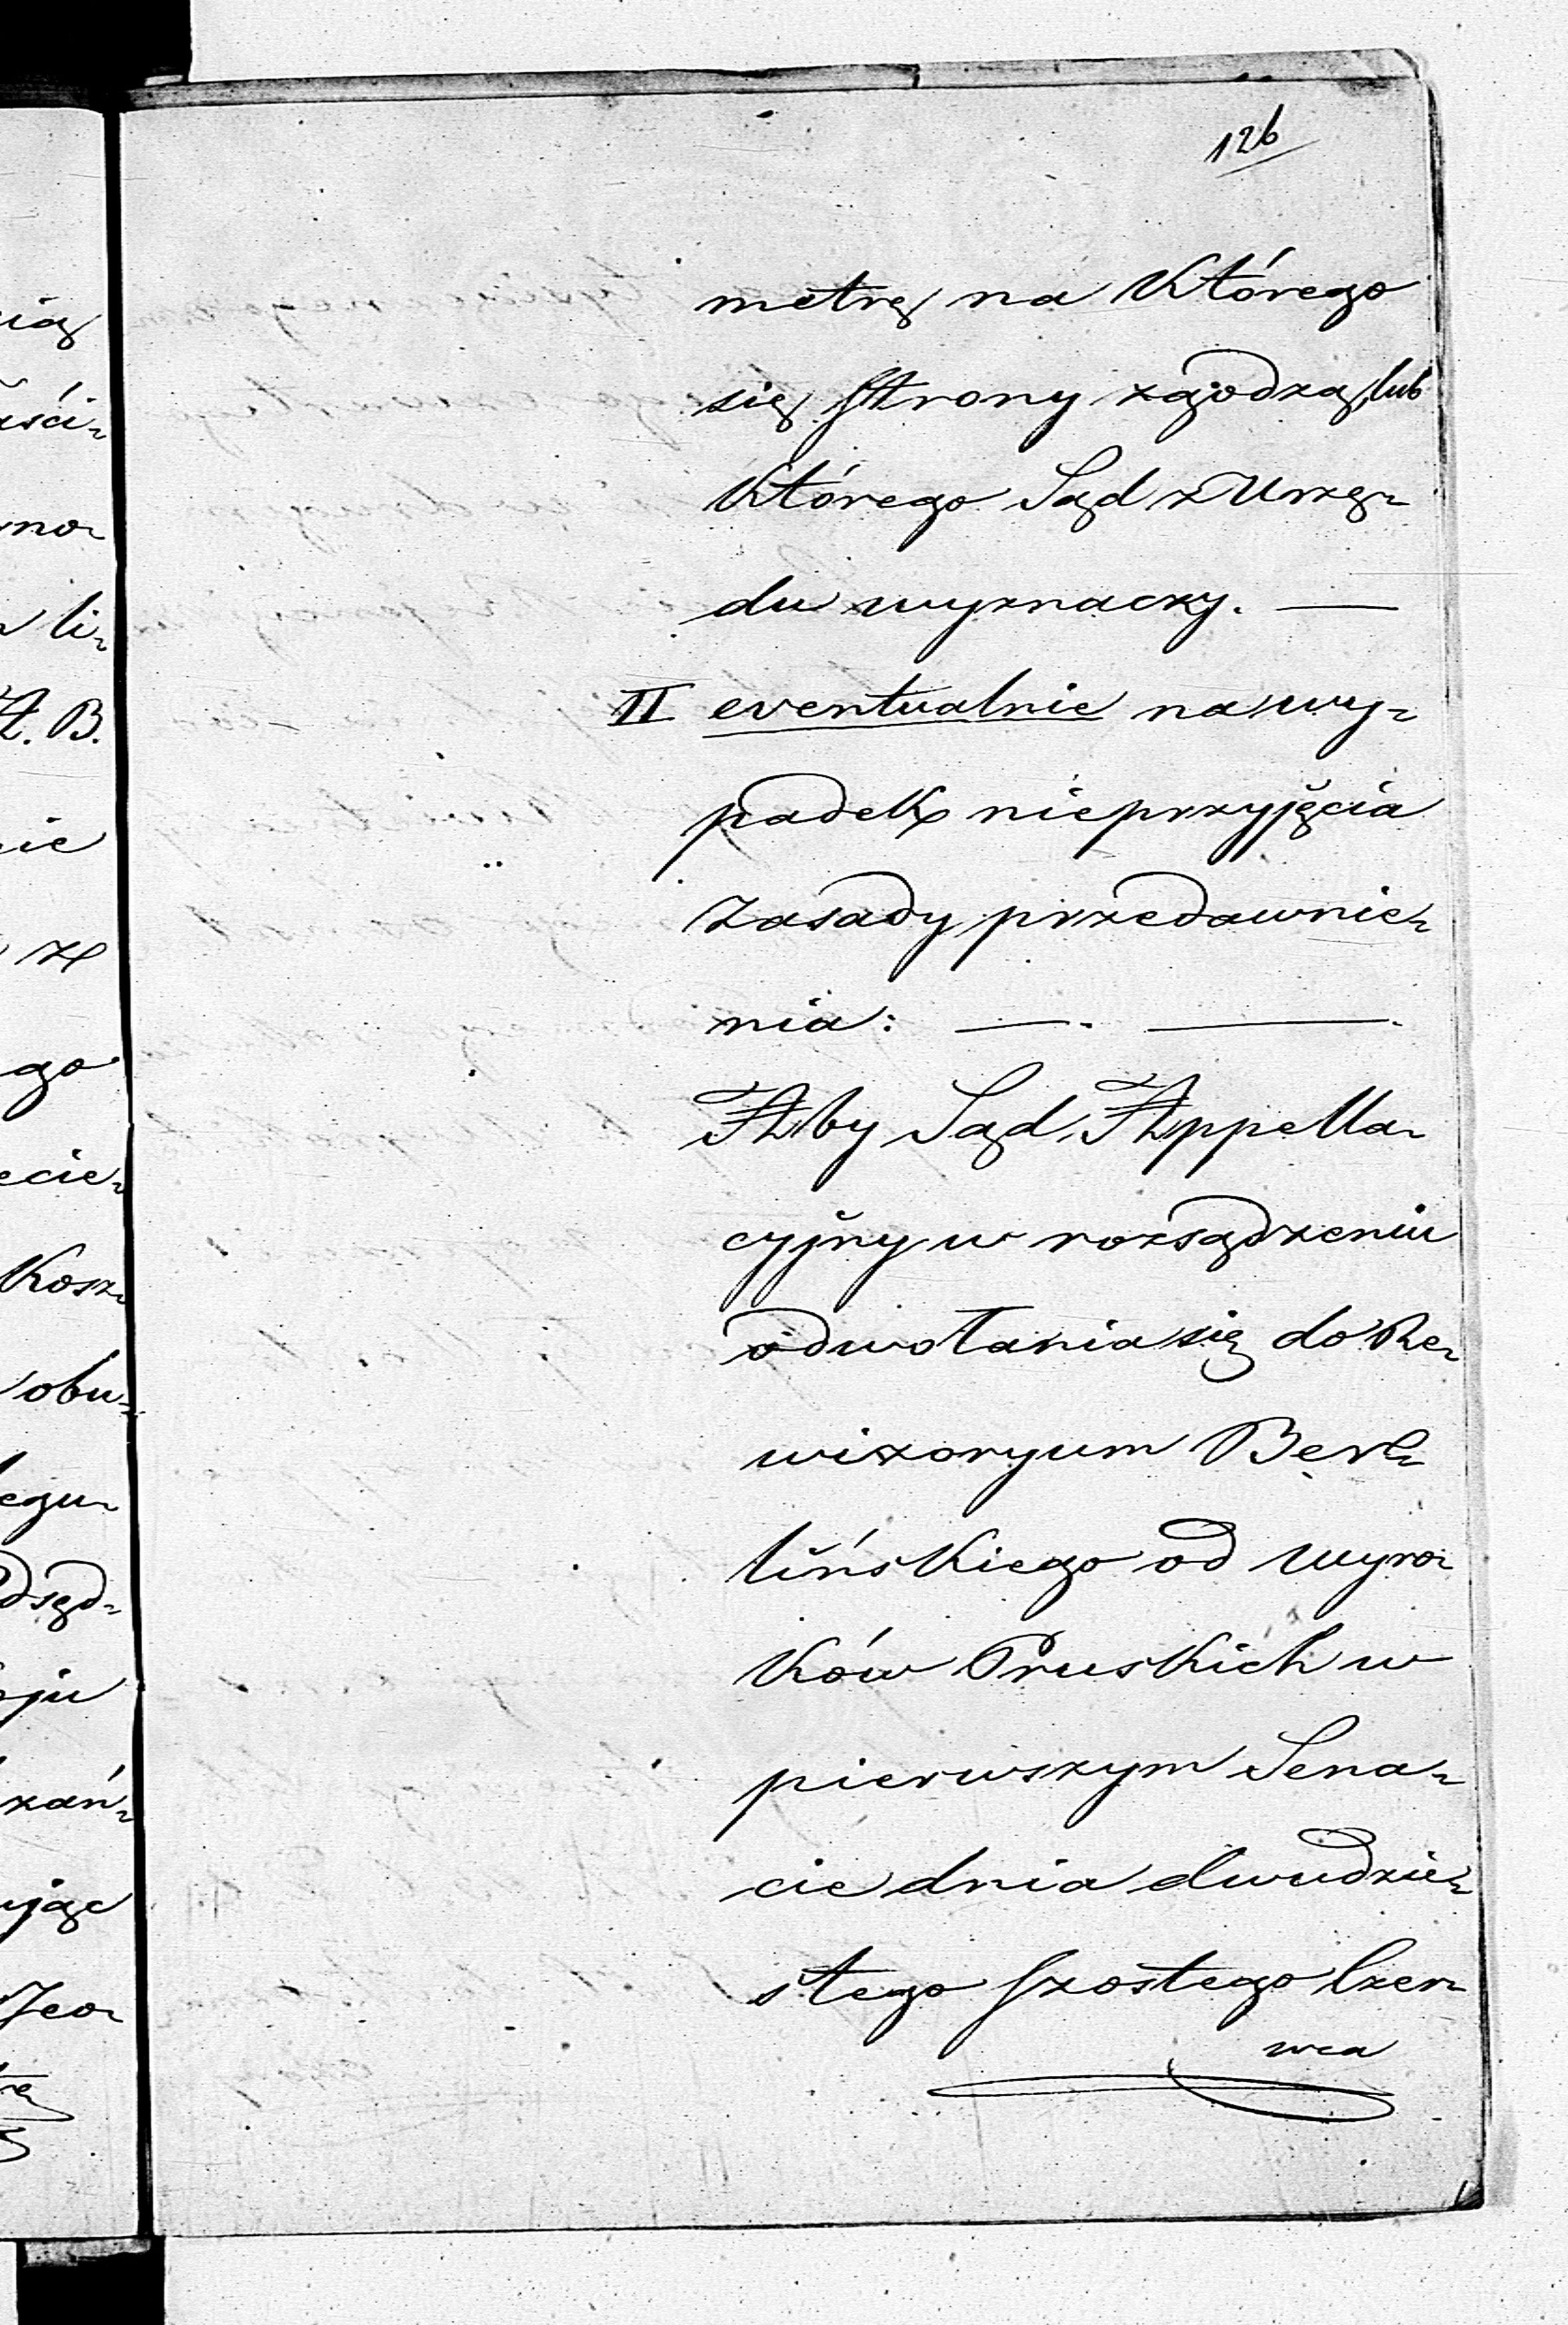 126
metrę na którego
się Strony zgodzą, lub
którego Sąd z Urzę-
du wyznaczy. —
II eventualnie na wy-
padek nieprzyjęcia
zasady przedawnie-
nia: — . —
Aby Sąd Appella-
cyjny w rozsądzeniu
odwołania się do Re-
wizoryum Ber-
lińskiego od wyro-
ków Pruskich w
pierwszym Sena-
cie dnia dwudzie-
stego szostego Czer-
wca